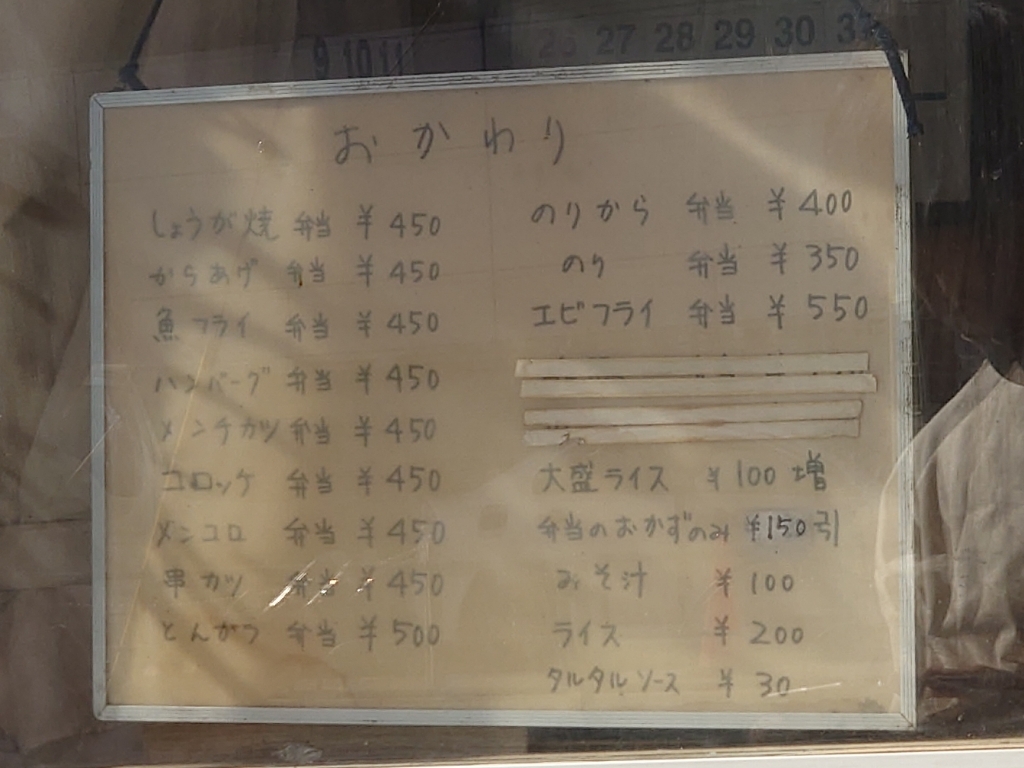 27 28 29 30
9 10 11
おかわり
しょうが焼 弁当 ¥450
からあげ 弁当 ¥450
魚フライ 弁当 ¥450
ハンバーグ 弁当 ¥450
メンチカツ 弁当 ¥450
コロッケ 弁当 ¥450
メンコロ 弁当 ¥450
串カツ 弁当 ¥450
とんかつ 弁当 ¥500
のりから 弁当 ¥400
のり 弁当 ¥350
エビフライ 弁当 ¥550
大盛ライス ¥100増
弁当のおかずのみ ¥150引
みそ汁 ¥100
ライス ¥200
タルタルソース ¥30